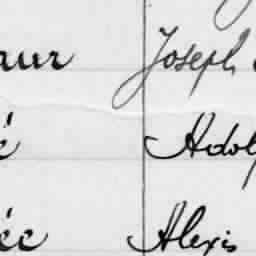 aur Joseph
é Adol
éc Alexis